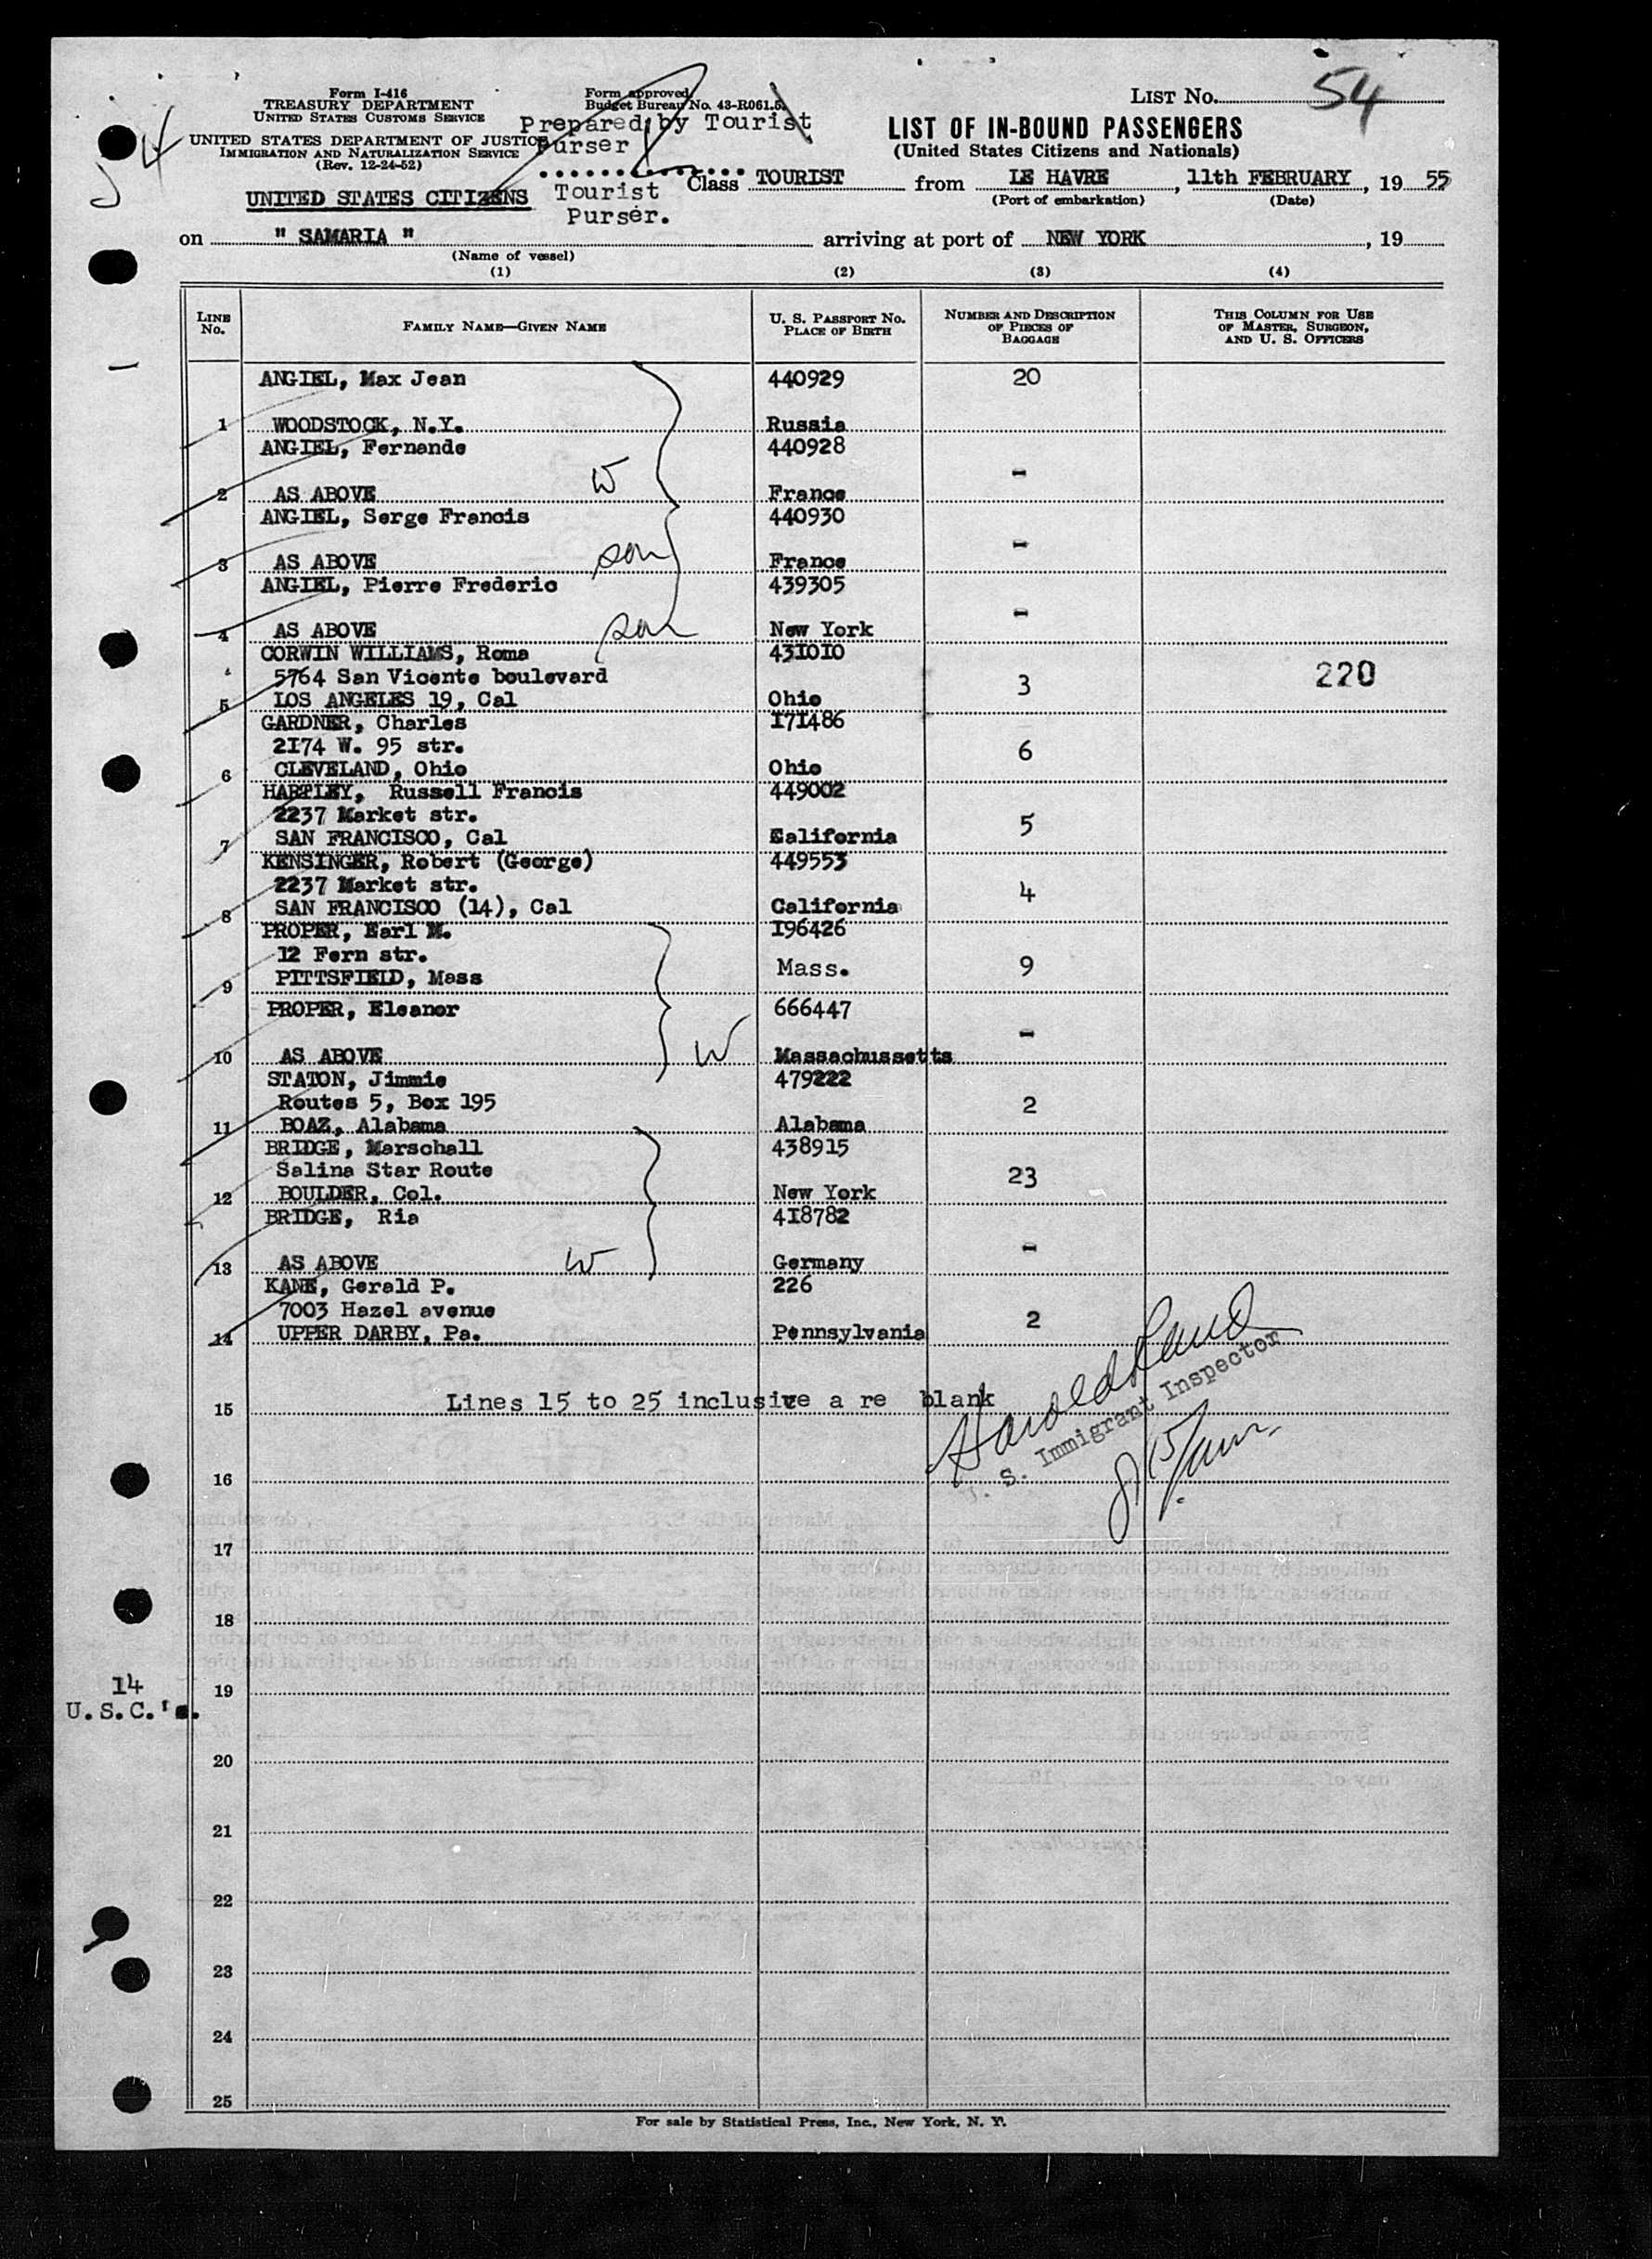 Form I-416
TREASURY DEPARTMENT
UNITED STATES CUSTOMS SERVICE
UNITED STATES DEPARTMENT OF JUSTICE
IMMIGRATION AND NATURALIZATION SERVICE
(Rev. 12-24-52)
UNITED STATES CITIZENS
Form approved
Budget Bureau No. 43-R061.5.
Prepared by Tourist
Purser
Tourist
Purser.
LIST No. 54
54
LIST OF IN-BOUND PASSENGERS
(United States Citizens and Nationals)
Class TOURIST from LE HAVRE, 11th FEBRUARY, 19 55
(Port of embarkation) (Date)
on " SAMARIA " arriving at port of NEW YORK, 19
(Name of vessel)
(1) (2) (3) (4)
LINE No. FAMILY NAME—GIVEN NAME U. S. PASSPORT No. PLACE OF BIRTH NUMBER AND DESCRIPTION OF PIECES OF BAGGAGE THIS COLUMN FOR USE OF MASTER, SURGEON, AND U. S. OFFICERS
ANGIEL, Max Jean 440929 20
1 WOODSTOCK, N.Y. Russia
ANGIEL, Fernande 440928
W -
2 AS ABOVE France
ANGIEL, Serge Francis 440930
son -
3 AS ABOVE France
ANGIEL, Pierre Frederic 439305
-
4 AS ABOVE son New York
CORWIN WILLIAMS, Roma 431010
5764 San Vicente boulevard 3 220
5 LOS ANGELES 19, Cal Ohio
GARDNER, Charles I7I486
2I74 W. 95 str. 6
6 CLEVELAND, Ohio Ohio
HARTLEY, Russell Francis 449002
2237 Market str. 5
7 SAN FRANCISCO, Cal California
KENSINGER, Robert (George) 449553
2237 Market str. 4
8 SAN FRANCISCO (14), Cal California
PROPER, Earl M. I96426
12 Fern str. Mass. 9
9 PITTSFIELD, Mass
PROPER, Eleanor 666447
W -
10 AS ABOVE Massachussetts
STATON, Jimmie 479222
Routes 5, Box 195 2
11 BOAZ, Alabama Alabama
BRIDGE, Marschall 438915
Salina Star Route 23
12 BOULDER, Col. New York
BRIDGE, Ria 4I8782
-
13 AS ABOVE W Germany
KANE, Gerald P. 226
7003 Hazel avenue 2
14 UPPER DARBY, Pa. Pennsylvania
Lines 15 to 25 inclusive a re blank
15
S. Immigrant Inspector
16
17
18
14
U.S.C.'s.
19
20
21
22
23
24
25
For sale by Statistical Press, Inc., New York, N. Y.